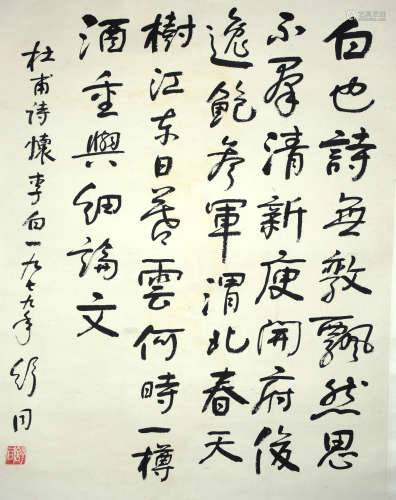 白也詩無敌飄然思
不群清新庾開府俊
逸鲍参軍渭北春天
樹江东日暮雲何時一樽
酒重與细論文
杜甫诗懷李白一九七九年舒同